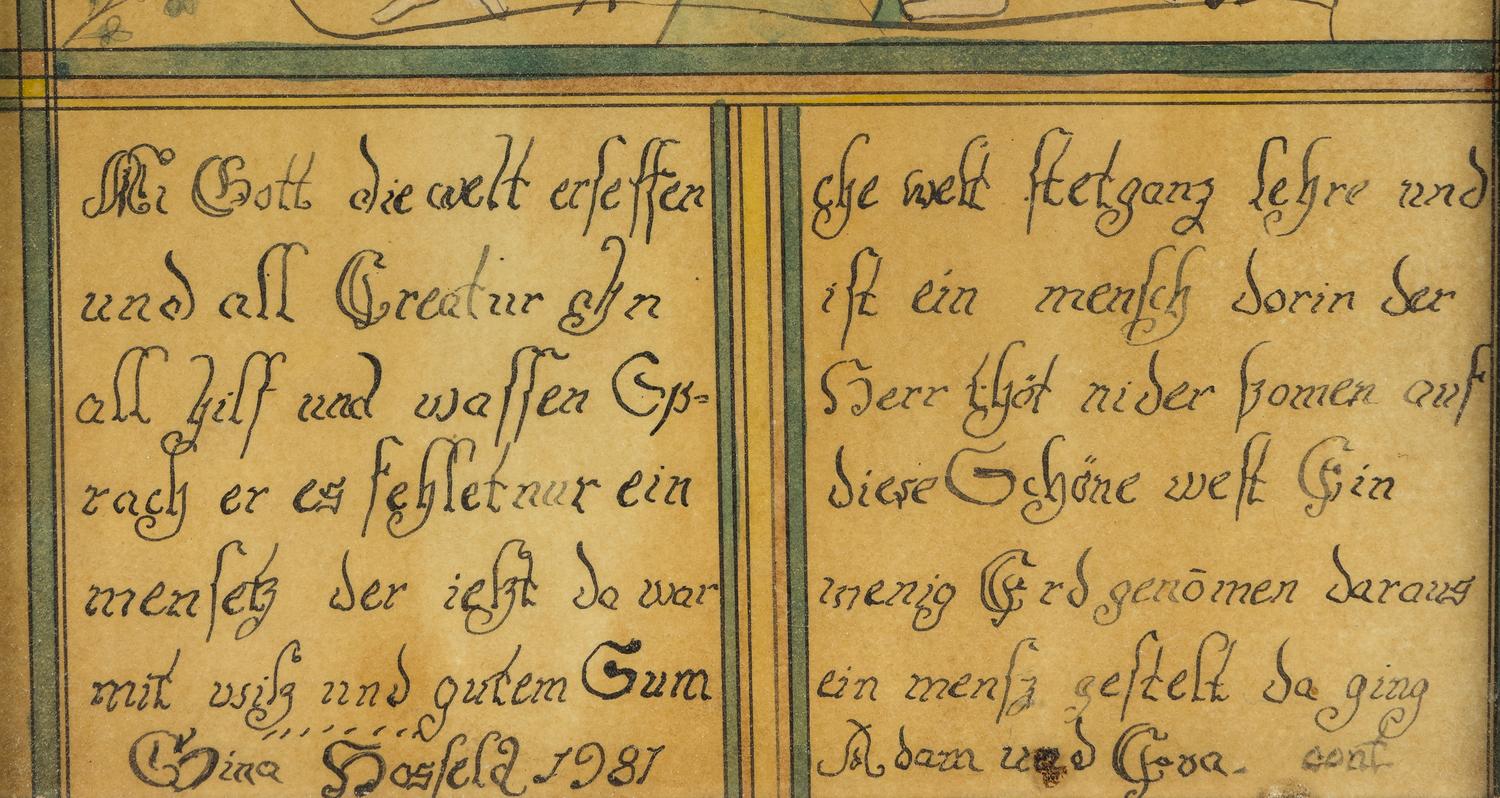 Mi Gott die welt erseffen
und all Creatur ihn
all hilf und waffen Sp-
rach er es fehlet nur ein
mensetz der ietzt do war
mit witz und gutem Sum
Gina Hosfeld 1981
che welt stet ganz lehre und
ist ein mensch dorin der
Herr thöt nider komen auf
diese Schöne welt Ein
wenig Erd genōmen daraus
ein mensz gestelt da ging
Adam und Eova. cont